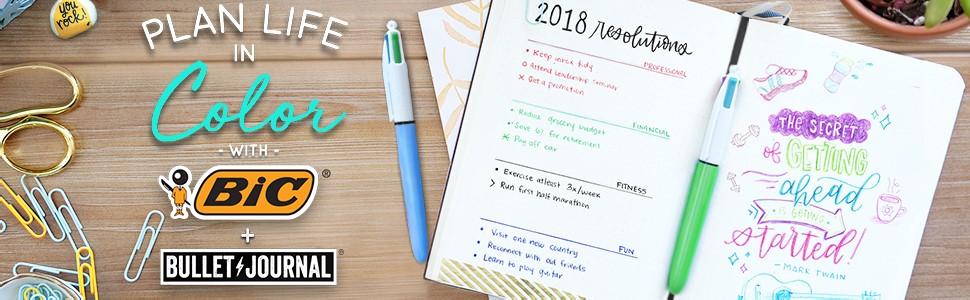 you
rock!
PLAN LIFE
IN
Color
- WITH -
BiC®
+
BULLET JOURNAL®
2018 resolutions
PROFESSIONAL
• Keep inbox tidy
o Attend leadership seminar
x Get a promotion
FINANCIAL
• Reduce grocery budget
• Save for retirement
Pay off car
FITNESS
• Exercise atleast 3x/week
> Run first half marathon
FUN
• Visit one new country
• Reconnect with old friends
• Learn to play guitar
THE SECRET
of GETTING
ahead
IS GETTING
started!
- MARK TWAIN